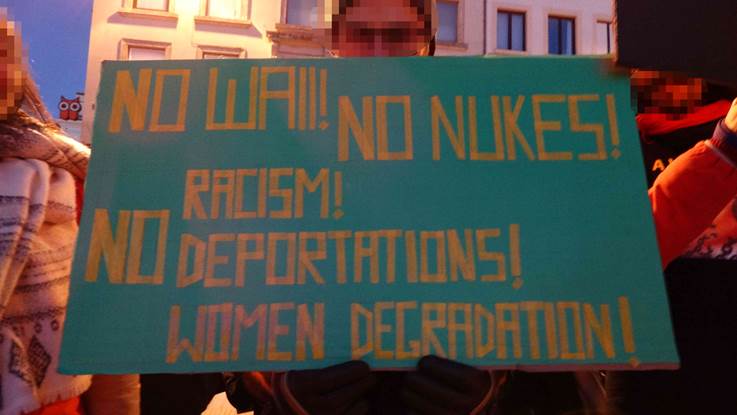 NO WAll!
NO NUKES!
RACISM!
NO DEPORTATIONS!
WOMEN DEGRADATION!